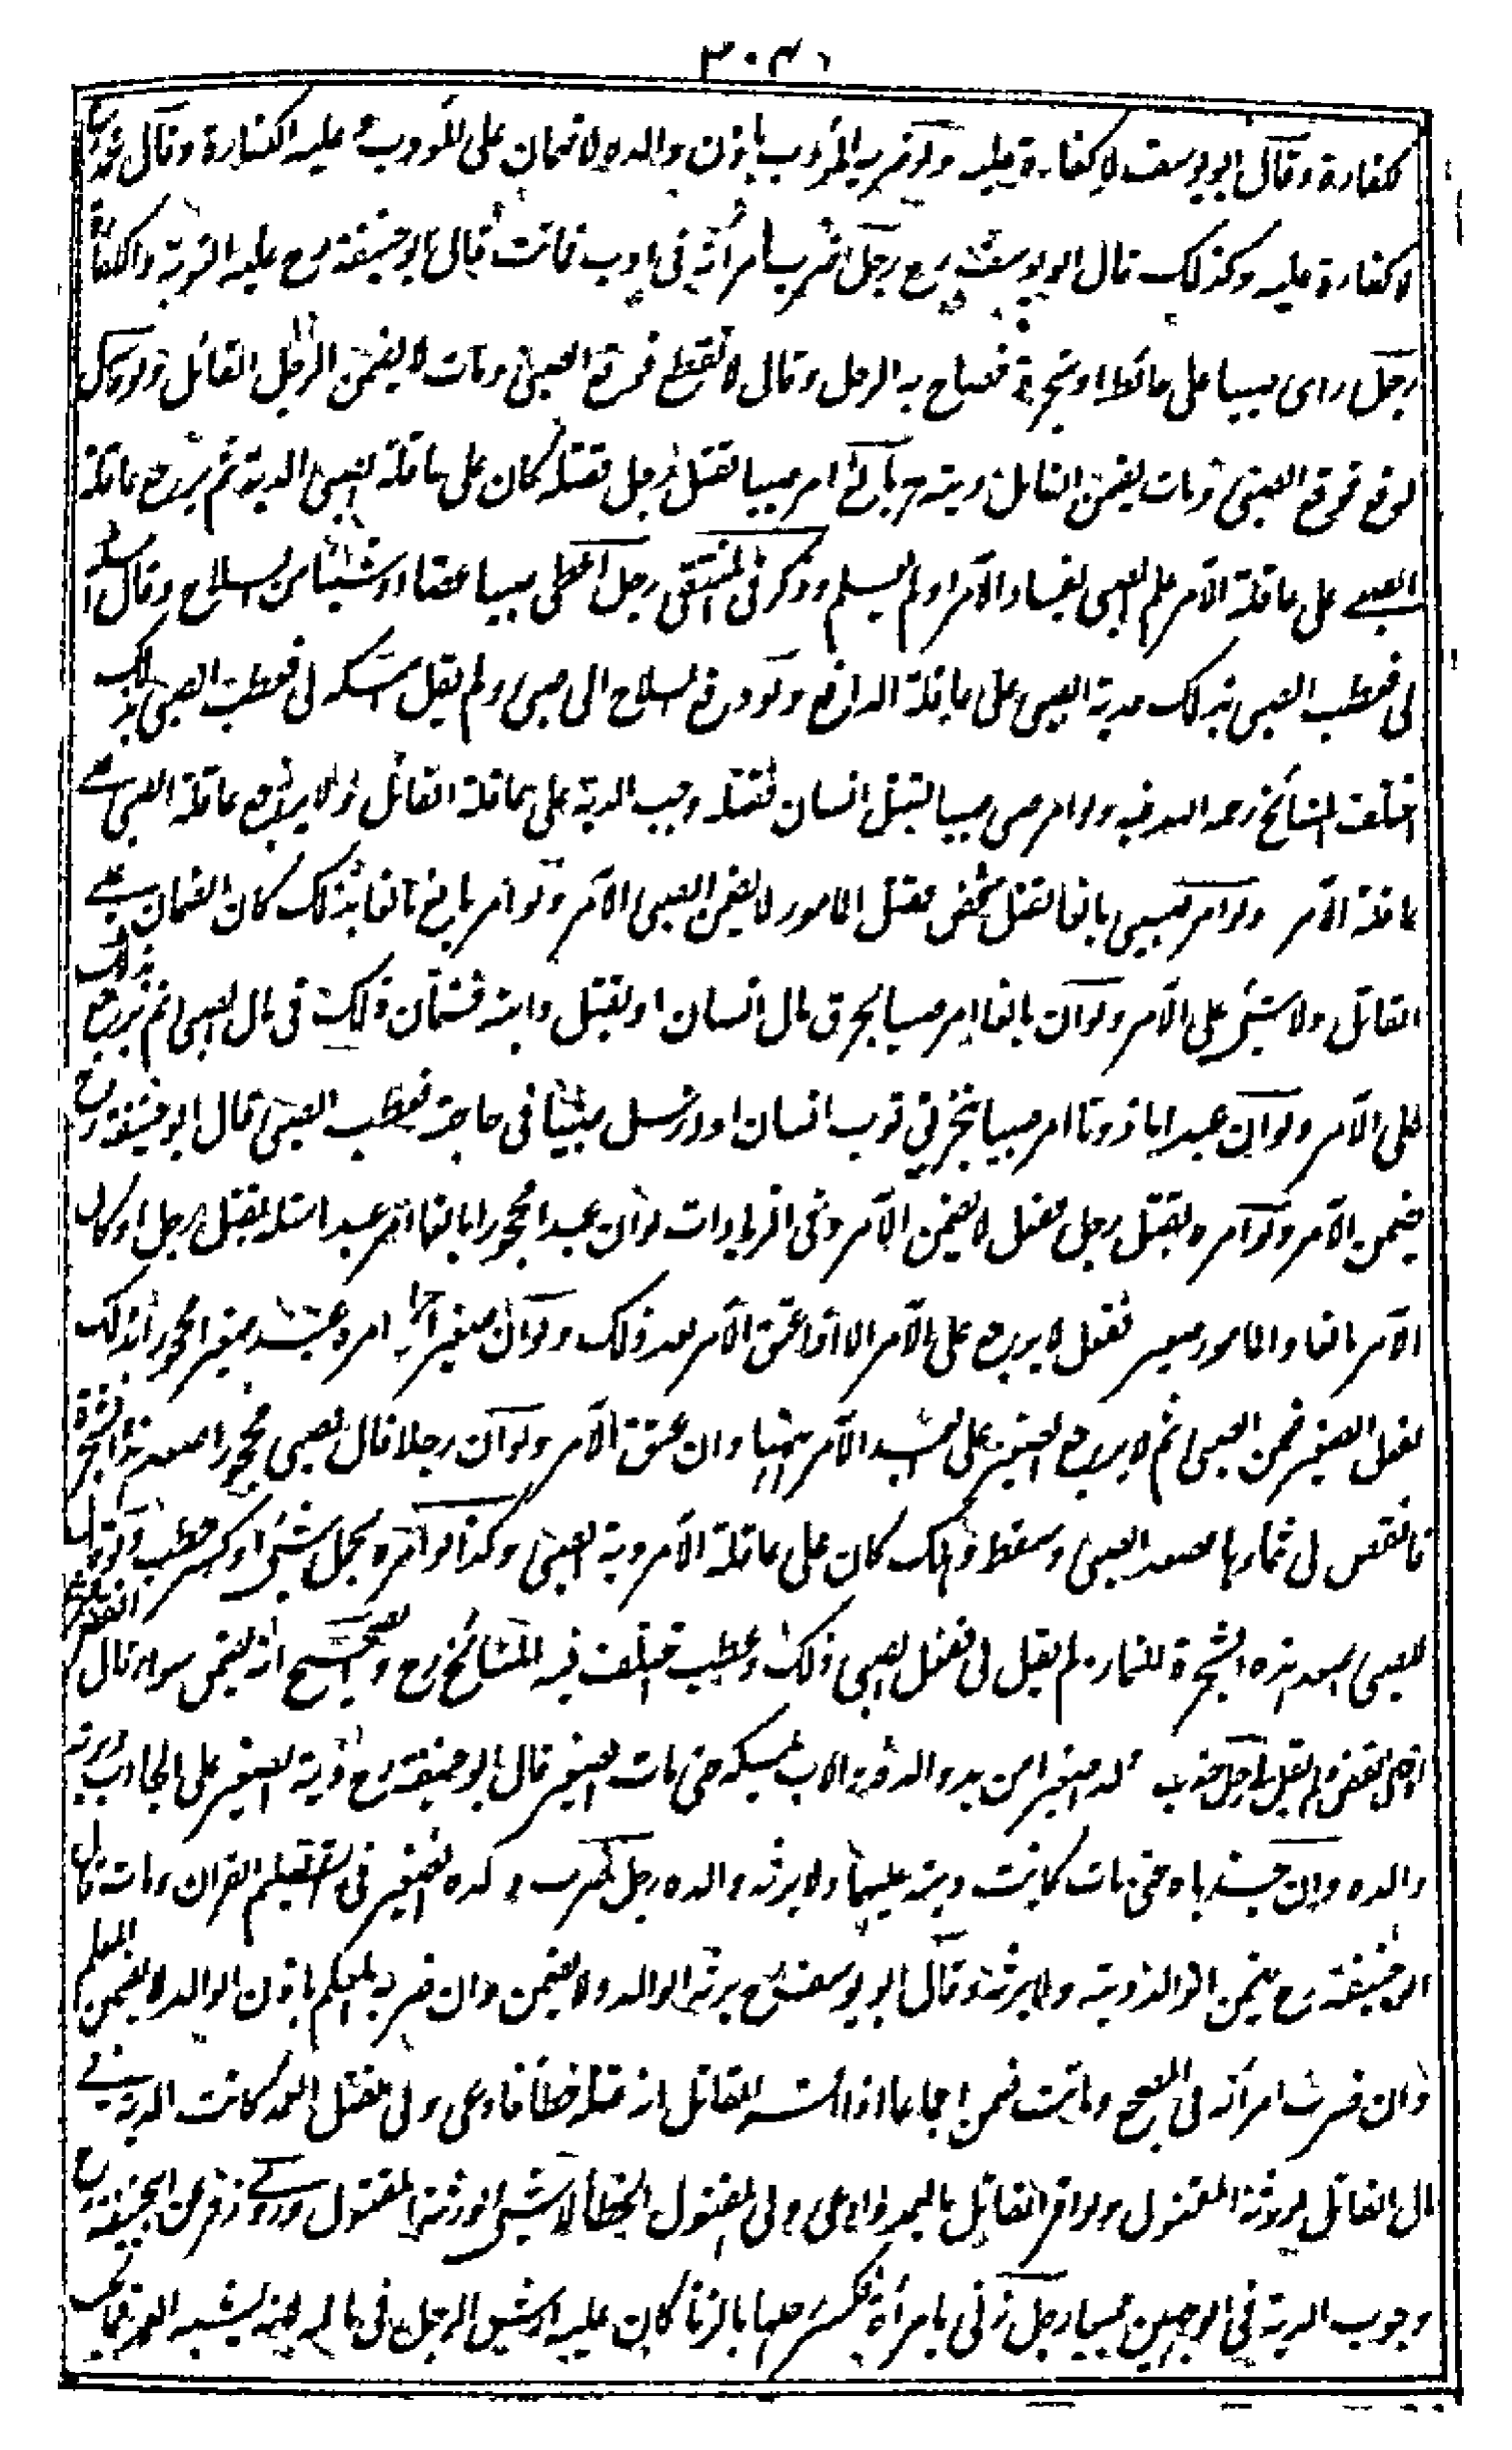 كفارة وقال ابو يوسف لا كفارة عليه ولو ضربه المؤدب باذن والده لا ضمان على المؤدب عليه الكفارة وقال محمد رح
لا كفارة عليه وكذلك قال ابو يوسف رح رجل ضرب امرأته في ادب فماتت قال ابو حنيفة رح عليه الدية والكفارة
رجل راى صبيا على حائط او شجرة فصاح به الرجل وقال لا تقع فوقع الصبى ومات لا يضمن الرجل القائل ولو قال
قع فوقع الصبى ومات يضمن القائل ديته امر صبيا بقتل رجل فقتله كان على عاقلة الصبى الدية ثم يرجع عاقلة
الصبي على عاقلة الآمر علم الصبى بفساد الآمر او لم يعلم وذكر فى المنتقى رجل اعطى صبيا عصا او شيئا من السلاح وقال امسكه
لى فعطب الصبى بذلك فدية الصبى على عاقلة الدافع ولو دفع السلاح الى صبى ولم يقل امسكه لى فعطب الصبى بذلك
اختلف المشائخ رحمه الله فيه ولو امر صبى صبيا بقتل انسان فقتله وجب الدية على عاقلة القاتل ولا يرجع عاقلة الصبى على
عاقلة الآمر ولو امر صبى بالغا بقتل شخص فقتل المامور لا يضمن الصبى الآمر ولو امر بالغ بالغا بذلك كان الضمان على
القاتل ولا شئ على الآمر ولو ان بالغا امر صبيا بحرق مال انسان او بقتل دابته فضمان ذلك فى مال الصبى ثم يرجع بذلك
على الآمر ولو ان عبدا ماذونا امر صبيا بخرق ثوب انسان او ارسل صبيا فى حاجة فعطب الصبى قال ابو حنيفة رح
يضمن الآمر ولو امره بقتل رجل فقتل لا يضمن الآمر وفى الزيادات لو ان عبدا محجورا بالغا امر عبدا مثله بقتل رجل او كان
الآمر بالغا والمامور صغير فقتل لا يرجع على الآمر الا اذا عتق الآمر بعد ذلك ولو ان صغيرا حرا امره عبد صغير محجور بذلك
ففعل الصغير ضمن الصبى ثم لا يرجع الصغير على العبد الآمر وان عتق الآمر ولو ان رجلا قال لصبى محجور اصعد هذه الشجرة
فانفض لى ثمارها فصعد الصبى وسقط وهلك كان على عاقلة الآمر دية الصبى وكذا لو امره بحمل شئ او كسر حطب ولو قال
للصبى اصعد هذه الشجرة للثمار ولم يقل لى ففعل الصبى ذلك وعطب اختلف فيه المشائخ رح والصحيح انه يضمن سواء قال انفض لى
او قال انفض ولم يقل لى رجل جذب ولدا صغيرا من يد والده والاب يمسكه حتى مات الصغير قال ابو حنيفة رح دية الصغير على الجاذب ويرثه
والده وان جذباه حتى مات كانت ديته عليهما ولا يرثه والده رجل ضرب ولده الصغير فى تعليم القران ومات قال
ابو حنيفة رح يضمن الوالد ديته ولا يرثه وقال ابو يوسف رح يرثه الوالد ولا يضمن وان ضربه المعلم باذن الوالد لا يضمن المعلم
وان ضرب امرأته فى المضجع وماتت ضمن اجماعا اقر القاتل انه قتله خطأ فادعى ولى القتل العمد كانت الدية في
مال القاتل لورثة المقتول ولو اقر القاتل بالعمد وادعى ولى المقتول الخطأ لا شئ لورثة المقتول وروى زفر عن ابى حنيفة رح
وجوب الدية فى الوجهين جميعا رجل زنى بامرأة فكسر رجلها بالزنا كان عليه ارش الرجل فى ماله لانه يشبه العمد قال